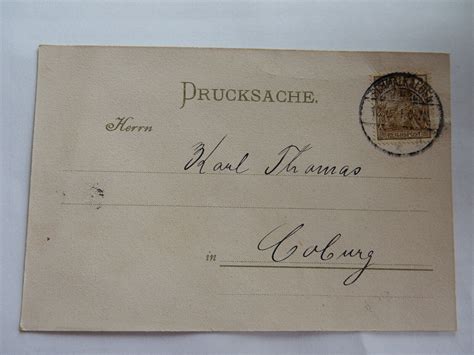 DRUCKSACHE.
REICHSPOST
Herrn
Karl Thomas
in Coburg